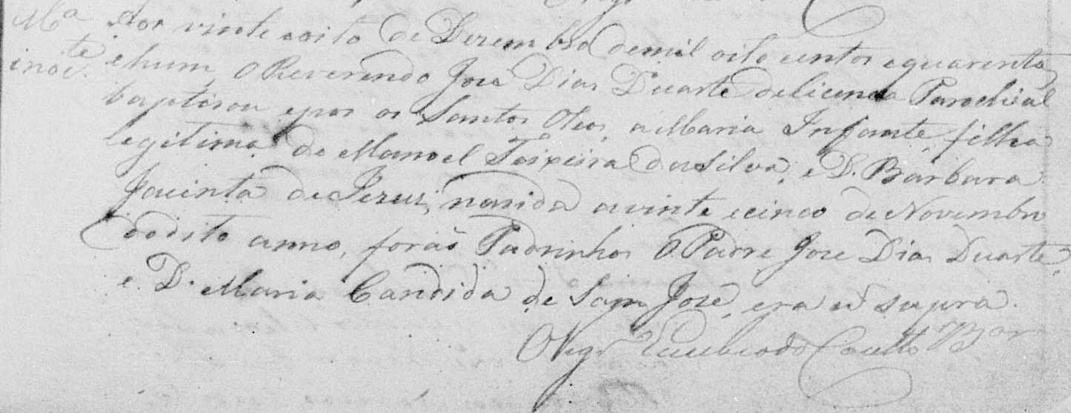 Mª Aos vinte oito de Dezembro de mil oito centos equarenta
inoᵉ.ᵗᵉ ehum, o Reverendo Joze Dias Duarte delicença Parochial
baptisou epos os Santos Oleos, aMaria Infante, filha
legitima de Manoel Teixeira daSilva, e D. Barbara
Jacinta de Jezus, nascida avinte ecinco de Novembro
dodito anno, forão Padrinhos O Padre Joze Dias Duarte,
e D. Maria Candida de Sam José, era ut supra.
O Vigrº Couto